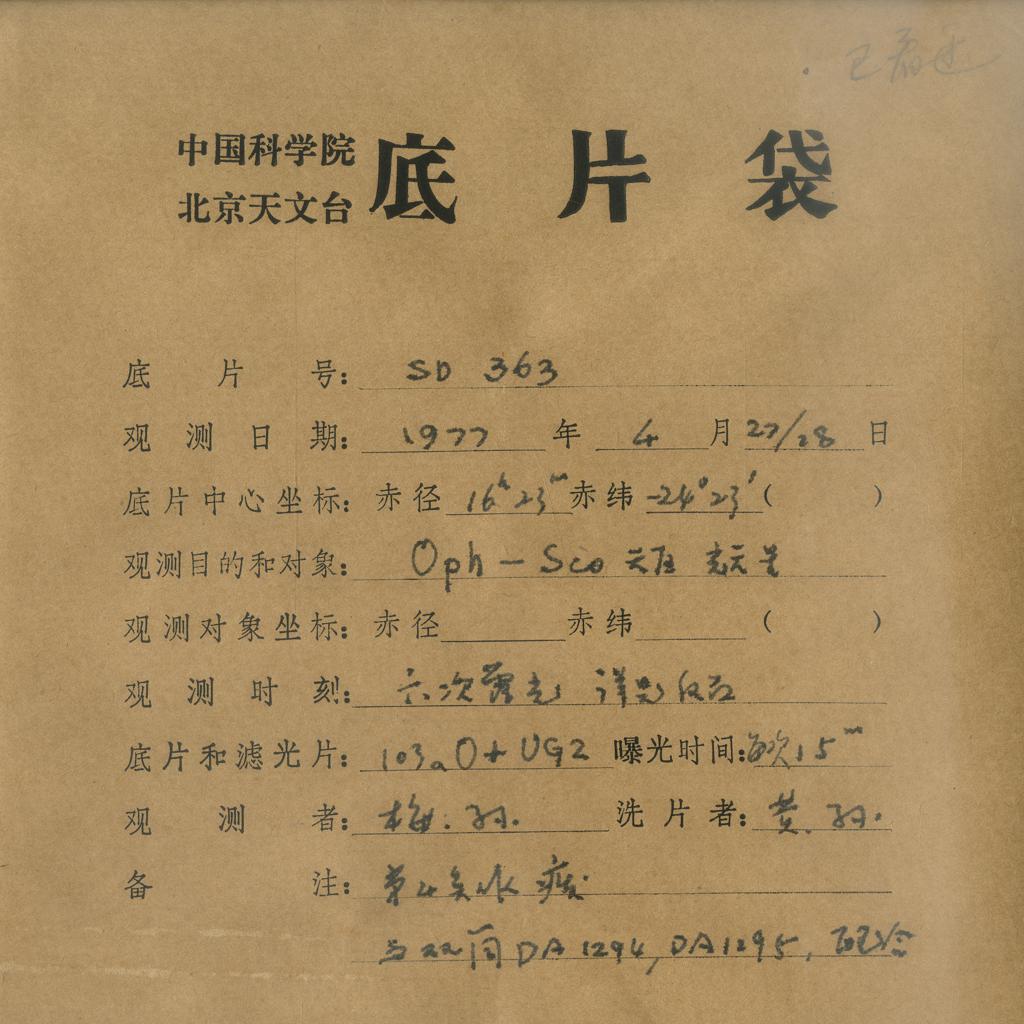 中国科学院
北京天文台
底片袋
底片号: SD 363
观测日期: 1977 年 4 月 27/28 日
底片中心坐标: 赤径 16ʰ23ᵐ 赤纬 -24°23′ ( )
观测目的和对象: Oph — Sco 天区
观测对象坐标: 赤径 赤纬 ( )
观测时刻: 六次露光 详见
底片和滤光片: 103aO + UG2 曝光时间: 每次15ᵐ
观测者: 梅. 孙. 洗片者: 黄. 孙.
备注: 第4
与双筒 DA 1294, DA 1295, 配合